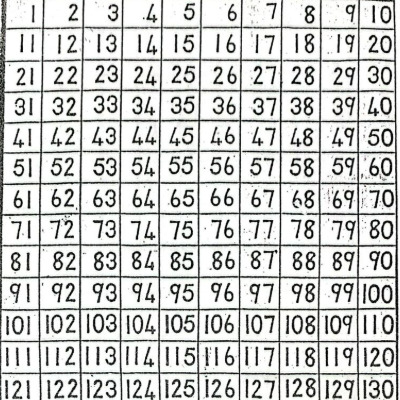 1 2 3 4 5 6 7 8 9 10
11 12 13 14 15 16 17 18 19 20
21 22 23 24 25 26 27 28 29 30
31 32 33 34 35 36 37 38 39 40
41 42 43 44 45 46 47 48 49 50
51 52 53 54 55 56 57 58 59 60
61 62 63 64 65 66 67 68 69 70
71 72 73 74 75 76 77 78 79 80
81 82 83 84 85 86 87 88 89 90
91 92 93 94 95 96 97 98 99 100
101 102 103 104 105 106 107 108 109 110
111 112 113 114 115 116 117 118 119 120
121 122 123 124 125 126 127 128 129 130